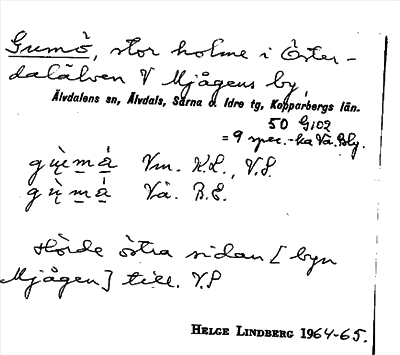 Gumö, stor holme i Öster-
dalälven V Mjågens by,
Älvdalens sn, Älvdals, Särna o. Idre tg, Kopparbergs län.
50 G102
= 9 spec.-ka Vå. Bly.
Vm. K.L., V.S.
Vå. B.E.
Hörde östra sidan [byn
Mjågen] till. V.S
HELGE LINDBERG 1964-65.